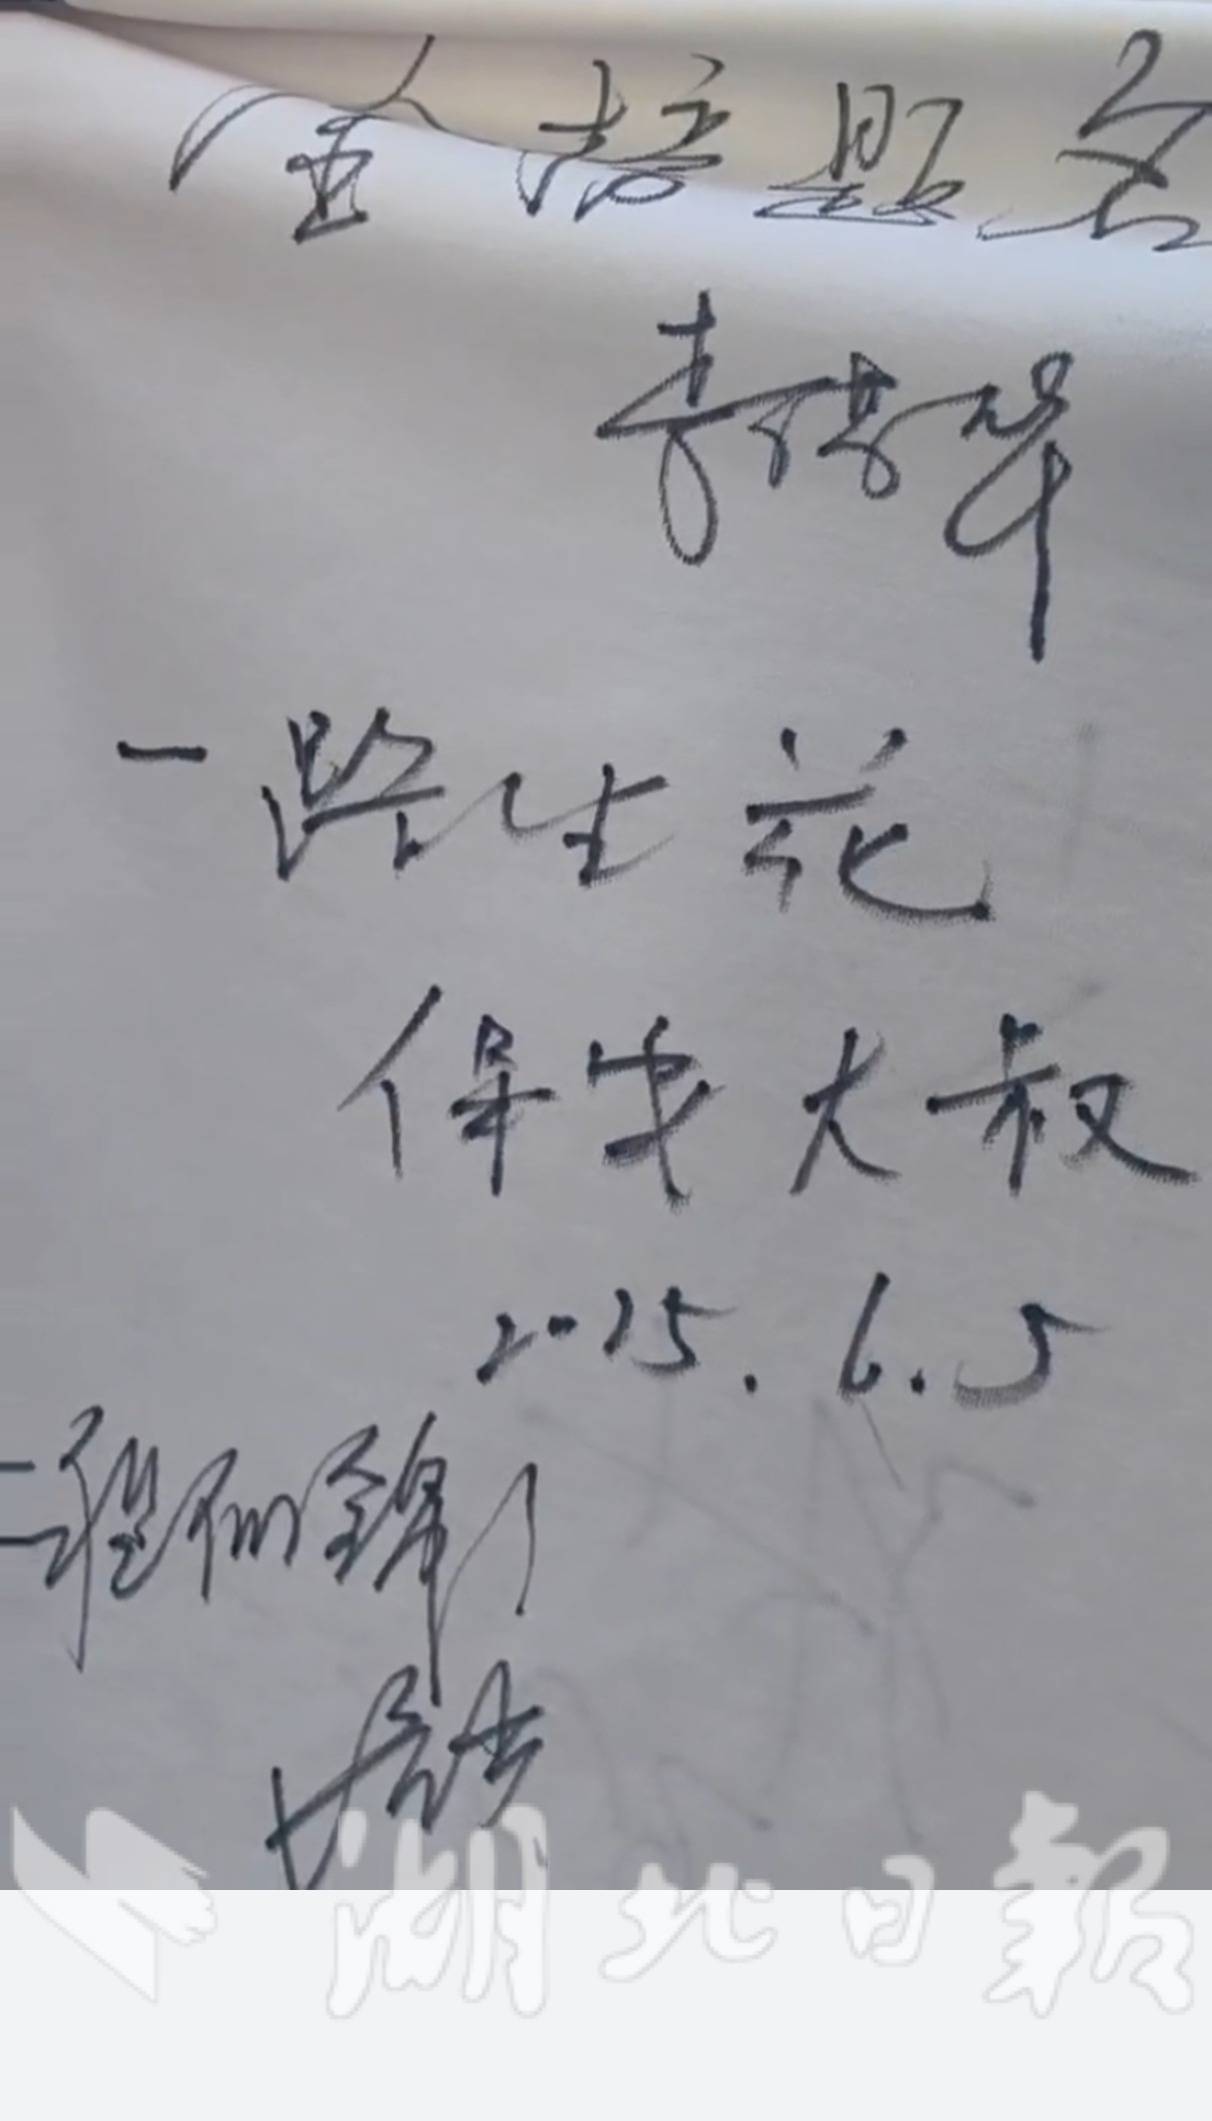 金榜题名
李培华
一路生花
保安大叔
2025.6.5
程
锦
湖北日报